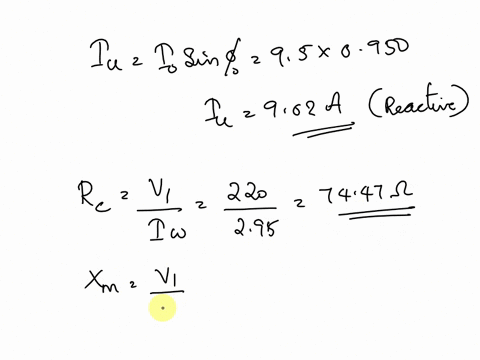 Iu = I₀ Sin ϕ₀ = 9.5 × 0.950
Iu = 9.02 A (Reactive)
Rc = V₁ / Iω = 220 / 2.95 = 74.47 Ω
Xm = V₁ /